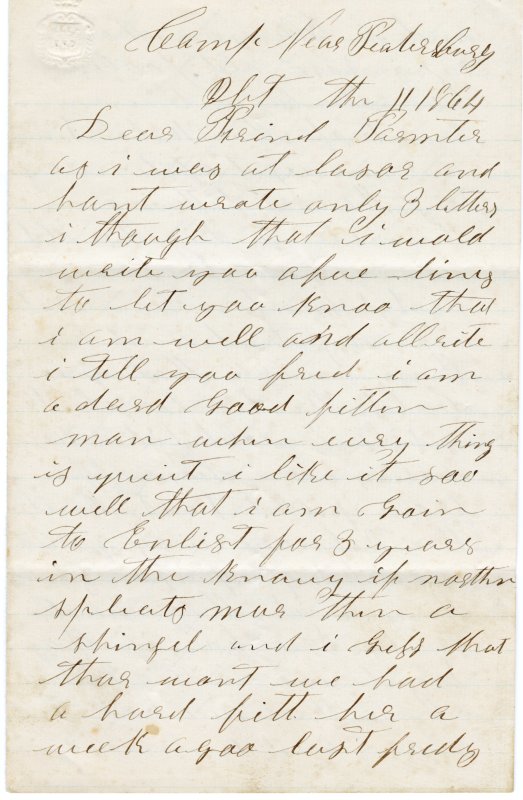 Camp Near Peatersburg
Obt the 11 1864
Dear Freind Parmter
as i was at lasor and
hant wrote only 3 letters
i though that i wold
write yoo afue lins
to let yoo knoo that
i am well and allrite
i tell yoo fred i am
a dasd Good fitten
man when evry thing
is quiit i like it soo
well that i am Goin
to Enlist for 3 years
in the Knavy if northn
spleats mor then a
shingel and i Gess that
thar wont we had
a hard fitt her a
week agoo last fredy